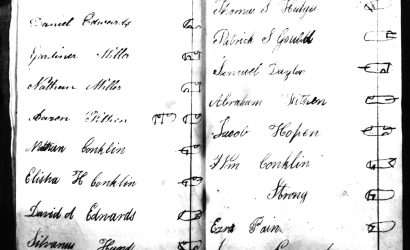 Daniel Edwards
Gardiner Miller
Nathan Miller
Aaron
Nathan Conklin
Elisha H Conklin
David A Edwards
Silvanus
Thomas S Hedges
Patrick S Gould
Samuel Taylor
Abraham
Jacob Hopen
Wm Conklin
Strong
Ezra Pain